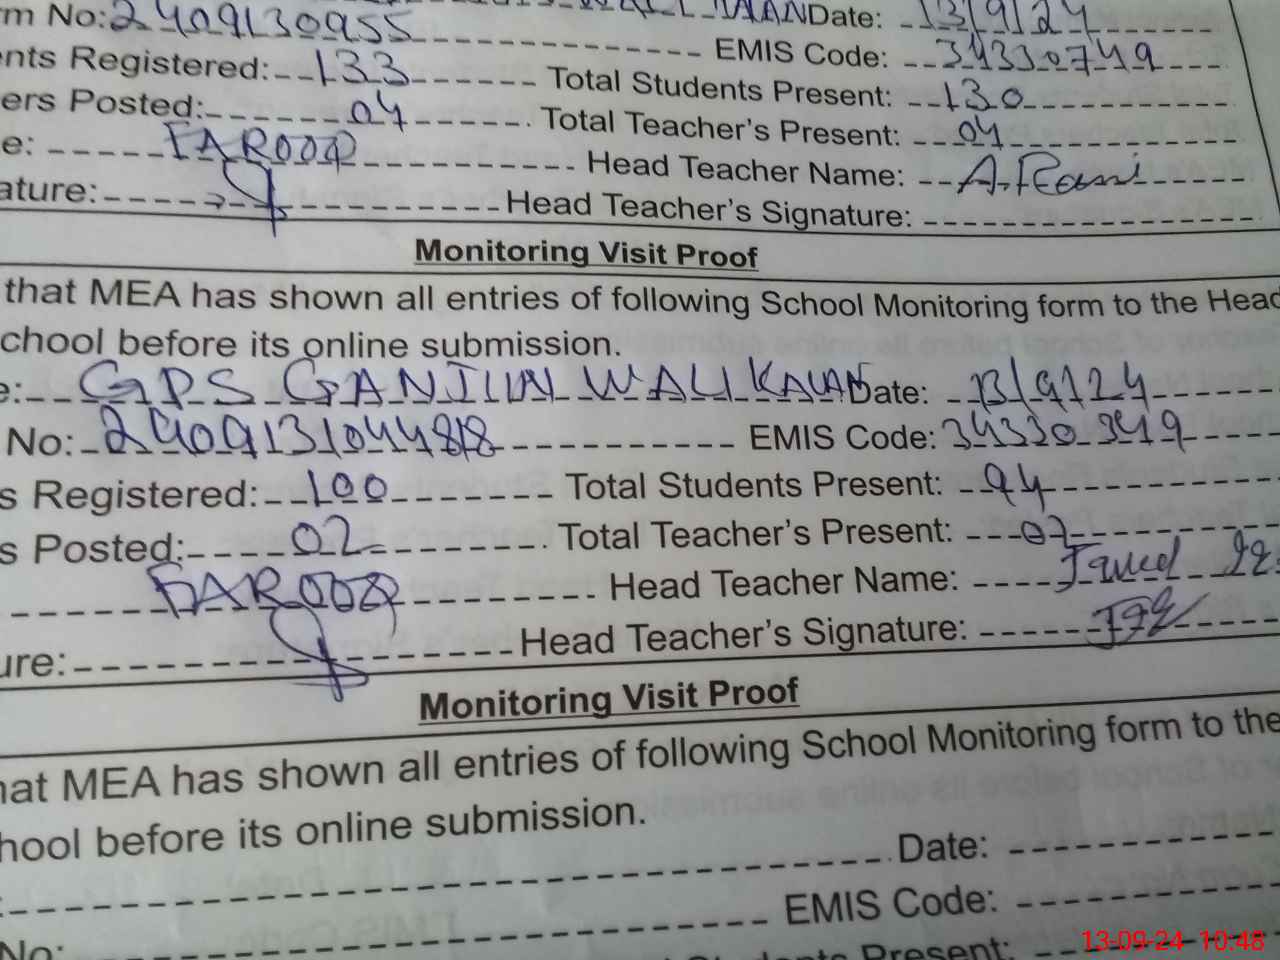 m No: 2409130955 Date: 13/9/24
EMIS Code: 34330749
ents Registered: 133 Total Students Present: 130
ers Posted: 04 Total Teacher's Present: 04
e: FAROOQ Head Teacher Name:
ature: Head Teacher's Signature:
Monitoring Visit Proof
that MEA has shown all entries of following School Monitoring form to the Head
chool before its online submission.
e: GPS GANJIUN WALI KALAN Date: 13/9/24
No: EMIS Code: 34330349
s Registered: 100 Total Students Present: 94
s Posted: 02 Total Teacher's Present: 02
FAROOQ Head Teacher Name: Javed
ure: Head Teacher's Signature:
Monitoring Visit Proof
hat MEA has shown all entries of following School Monitoring form to the
hool before its online submission.
: Date:
EMIS Code:
No: Students Present:
13-09-24 10:48